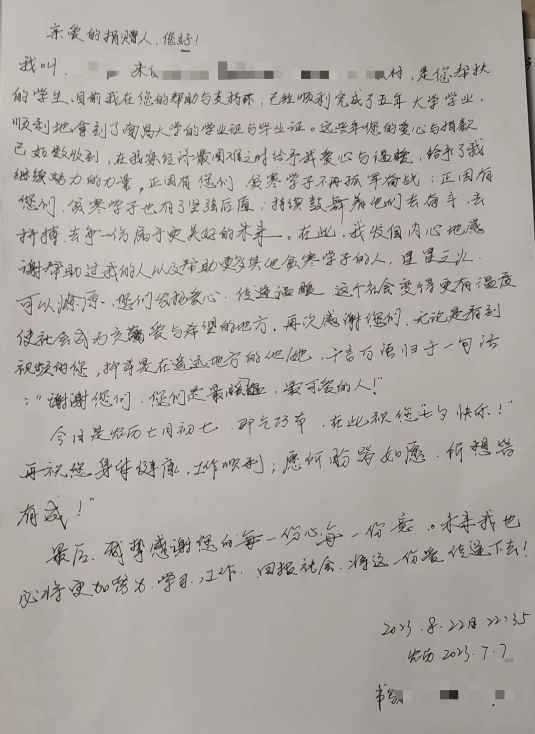 亲爱的捐赠人,您好!
我叫 来自 村,是您帮扶
的学生,目前我在您的帮助与支持下,已经顺利完成了五年大学学业,
顺利地拿到了南昌大学的学业证与毕业证。这些年您的爱心与捐款
已如数收到,在我家经济最困难之时给予我爱心与温暖,给予了我
继续努力的力量。正因有您们,贫寒学子不再孤军奋战;正因有
您们,贫寒学子也有了坚强后盾;持续鼓舞着他们去奋斗、去
拼搏、去争一份属于更美好的未来。在此,我发自内心地感
谢帮助过我的人以及帮助更多其他贫寒学子的人,星星之火
可以燎原。您们发扬爱心、传递温暖,这个社会变得更有温度
使社会成为充满爱与希望的地方,再次感谢您们,无论是看到
视频的您,抑或是在遥远地方的他/她,千言万语归于一句话
:“谢谢您们,您们是最温暖,最可爱的人!”
今日是农历七月初七,即乞巧节,在此祝您“七夕快乐!”
再祝您身体健康,工作顺利;愿所盼皆如愿,所想皆
有成!”
最后,诚挚感谢您的每一份心每一份意。未来我也
必将更加努力学习、工作,回报社会,将这一份爱传递下去!
2023.8.22日 22:35
农历2023.7.7